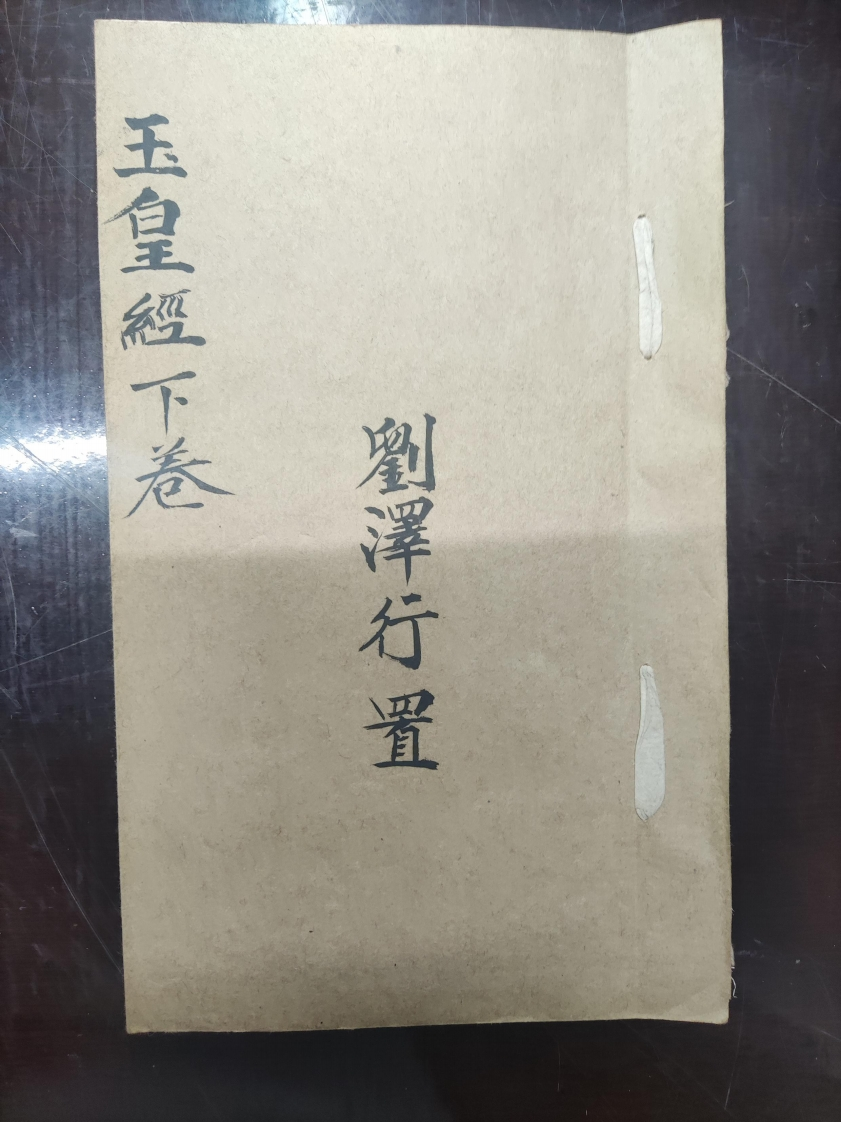 玉皇經下卷
劉澤行置